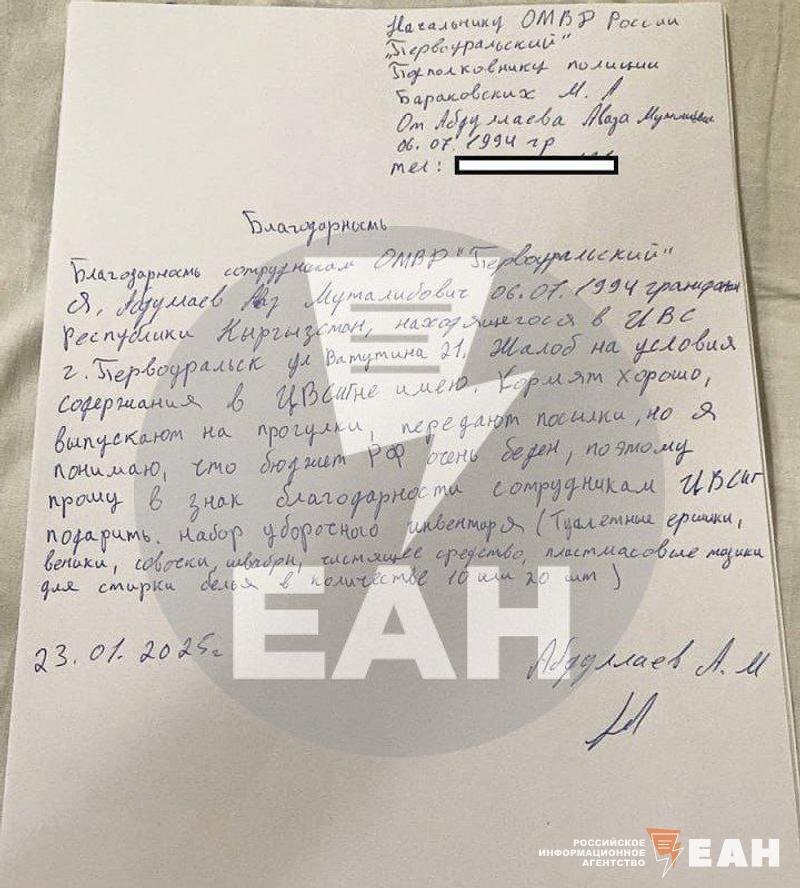 Начальнику ОМВР России
"Первоуральский"
Подполковнику полиции
Бараковских М. А
От Абдуллаева Аваза
06.07.1994 гр
тел:
Благодарность
Благодарность сотрудникам ОМВР "Первоуральский"
Я, Муталибович 06.07.1994 гражданин
Республики Кыргызстан, находящегося в ЦВС
г. Первоуральск ул Ватутина 21. Жалоб на условия
содержания в ЦВСИГ не имею. Кормят хорошо,
выпускают на прогулки, передают посылки, но я
понимаю, что бюджет РФ очень беден, поэтому
прошу в знак благодарности сотрудникам ЦВСИГ
подарить. набор уборочного инвентаря (Туалетные ершики,
веники, совочки, швабры, чистящее средство, пластмасовые тазики
для стирки белья в количестве 10 или 20 шт)
23.01.2025г
Абдуллаев А. М
ЕАН
РОССИЙСКОЕ
ИНФОРМАЦИОННОЕ
АГЕНТСТВО
ЕАН